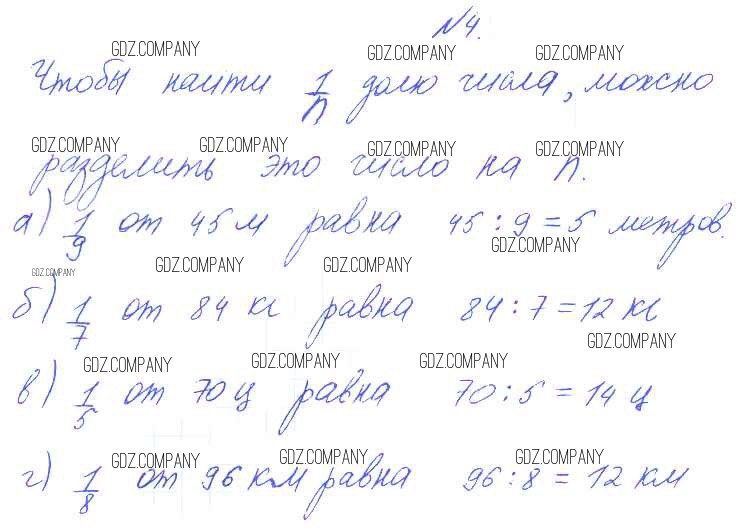 №4.
GDZ.COMPANY GDZ.COMPANY GDZ.COMPANY
Чтобы найти 1/n долю числа, можно
GDZ.COMPANY GDZ.COMPANY GDZ.COMPANY GDZ.COMPANY
разделить это число на n.
а) 1/9 от 45 м равна 45 : 9 = 5 метров.
GDZ.COMPANY
GDZ.COMPANY GDZ.COMPANY GDZ.COMPANY
б) 1/7 от 84 кг равна 84 : 7 = 12 кг
GDZ.COMPANY
GDZ.COMPANY GDZ.COMPANY GDZ.COMPANY
в) 1/5 от 70 ц равна 70 : 5 = 14 ц
GDZ.COMPANY GDZ.COMPANY GDZ.COMPANY
г) 1/8 от 96 км равна 96 : 8 = 12 км